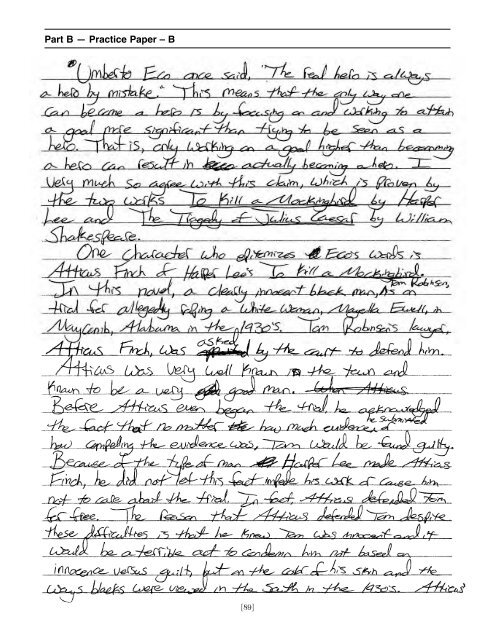 Part B — Practice Paper – B
"Umberto Eco once said, "The real hero is always
a hero by mistake." This means that the only way one
can become a hero is by focusing on and working to attain
a goal more significant than trying to be seen as a
hero. That is, only working on a goal higher than becomming
a hero can result in actually becoming a hero. I
very much so agree with this claim, which is proven by
the two works To Kill a Mockingbird by Harper
Lee and The Tragedy of Julius Caesar by William
Shakespeare.
One character who epitomizes Ecos words is
Atticus Finch of Harper Lee's To Kill a Mockingbird.
In this novel, a clearly innocent black man, Tom Robinson, is on
trial for allegedly raping a white woman, Mayella Ewell, in
Maycomb, Alabama in the 1930's. Tom Robinson's lawyer,
Atticus Finch, was asked by the court to defend him.
Atticus was very well known in the town and
known to be a very good man.
Before Atticus even began the trial, he acknowledged
the fact that no matter how much evidence he submitted or
how compelling the evidence was, Tom would be found guilty.
Because of the type of man Harper Lee made Atticus
Finch, he did not let this fact impede his work or cause him
not to care about the trial. In fact, Atticus defended Tom
for free. The reason that Atticus defended Tom despite
these difficulties is that he knew Tom was innocent and it
would be a terrible act to condemn him not based on
innocence versus guilt, but on the color of his skin and the
ways blacks were viewed in the South in the 1930's. Atticus'
[89]